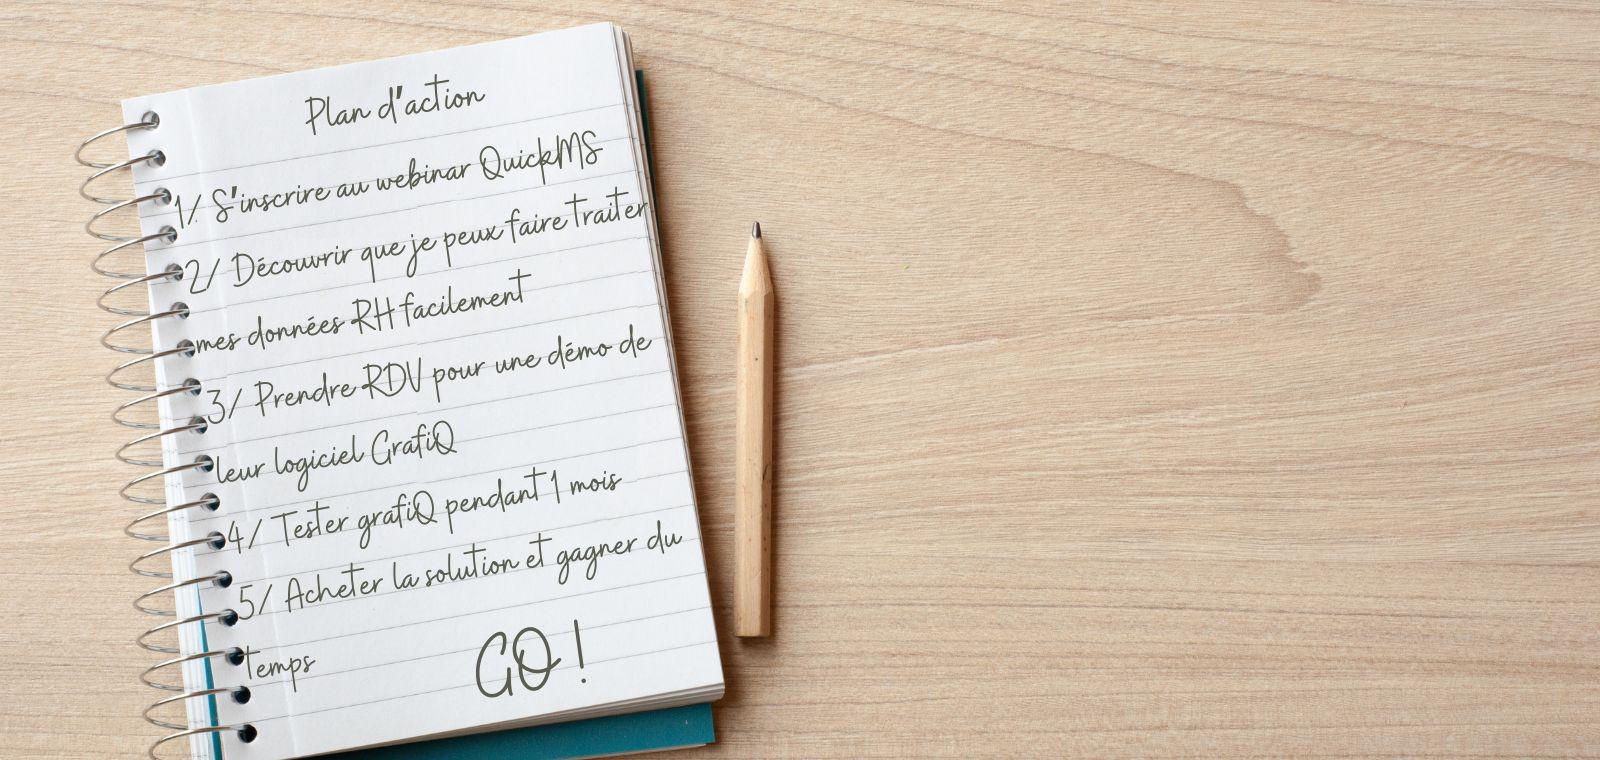 Plan d'action
1/ S'inscrire au webinar QuickMS
2/ Découvrir que je peux faire traiter
mes données RH facilement
3/ Prendre RDV pour une démo de
leur logiciel GrafiQ
4/ Tester grafiQ pendant 1 mois
5/ Acheter la solution et gagner du
temps
GO !